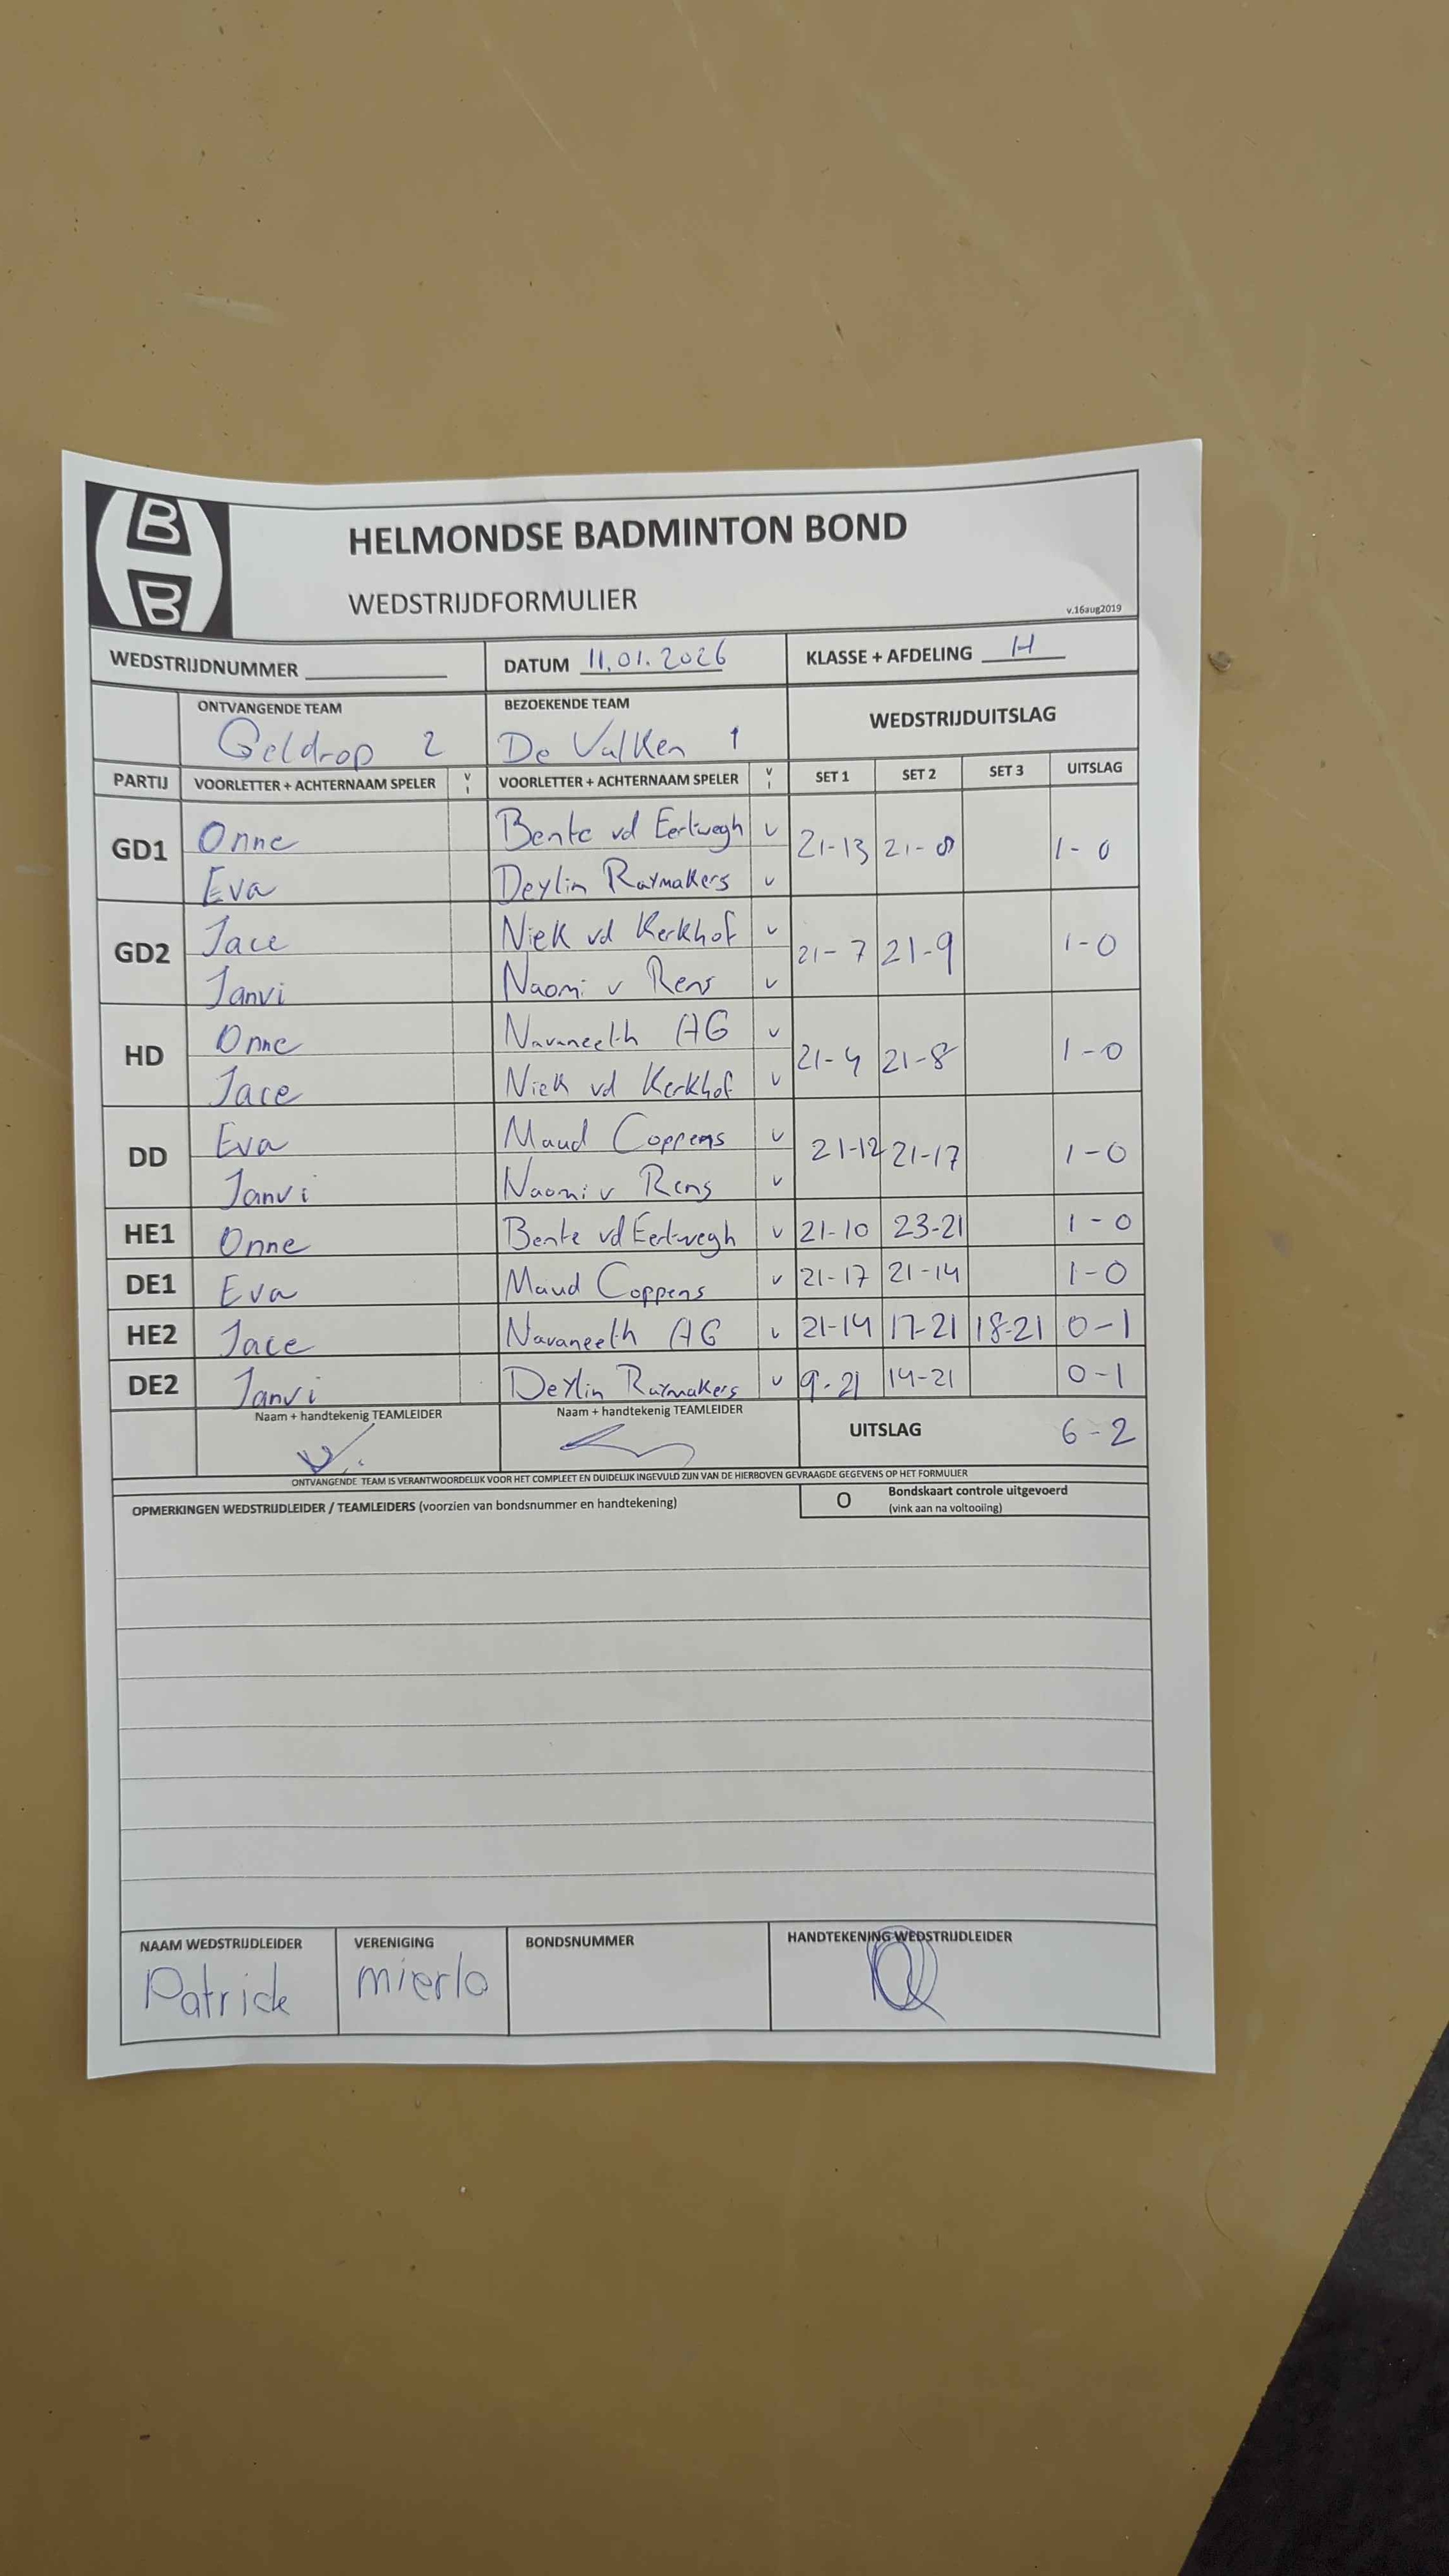 B
B
HELMONDSE BADMINTON BOND
WEDSTRIJDFORMULIER
v.16aug2019
WEDSTRIJDNUMMER DATUM 11.01.2026 KLASSE + AFDELING H
ONTVANGENDE TEAM BEZOEKENDE TEAM WEDSTRIJDUITSLAG
Geldrop 2 De Valken 1
PARTIJ VOORLETTER + ACHTERNAAM SPELER V I VOORLETTER + ACHTERNAAM SPELER V I SET 1 SET 2 SET 3 UITSLAG
GD1 Onne Bente vd Eertwegh v 21-13 21-8 1-0
Eva Deylin Raymakers v
GD2 Jace Niek vd Kerkhof v 21-7 21-9 1-0
Janvi Naomi v Rens v
HD Onne Navaneeth AG v 21-4 21-8 1-0
Jace Niek vd Kerkhof v
DD Eva Maud Coppens v 21-12 21-17 1-0
Janvi Naomi v Rens v
HE1 Onne Bente vd Eertwegh v 21-10 23-21 1-0
DE1 Eva Maud Coppens v 21-17 21-14 1-0
HE2 Jace Navaneeth AG v 21-14 17-21 18-21 0-1
DE2 Janvi Deylin Raymakers v 9-21 14-21 0-1
Naam + handtekenig TEAMLEIDER Naam + handtekenig TEAMLEIDER UITSLAG 6-2
ONTVANGENDE TEAM IS VERANTWOORDELIJK VOOR HET COMPLEET EN DUIDELIJK INGEVULD ZIJN VAN DE HIERBOVEN GEVRAAGDE GEGEVENS OP HET FORMULIER
OPMERKINGEN WEDSTRIJDLEIDER / TEAMLEIDERS (voorzien van bondsnummer en handtekening) O Bondskaart controle uitgevoerd
(vink aan na voltooiing)
NAAM WEDSTRIJDLEIDER VERENIGING BONDSNUMMER HANDTEKENING WEDSTRIJDLEIDER
Patrick mierlo